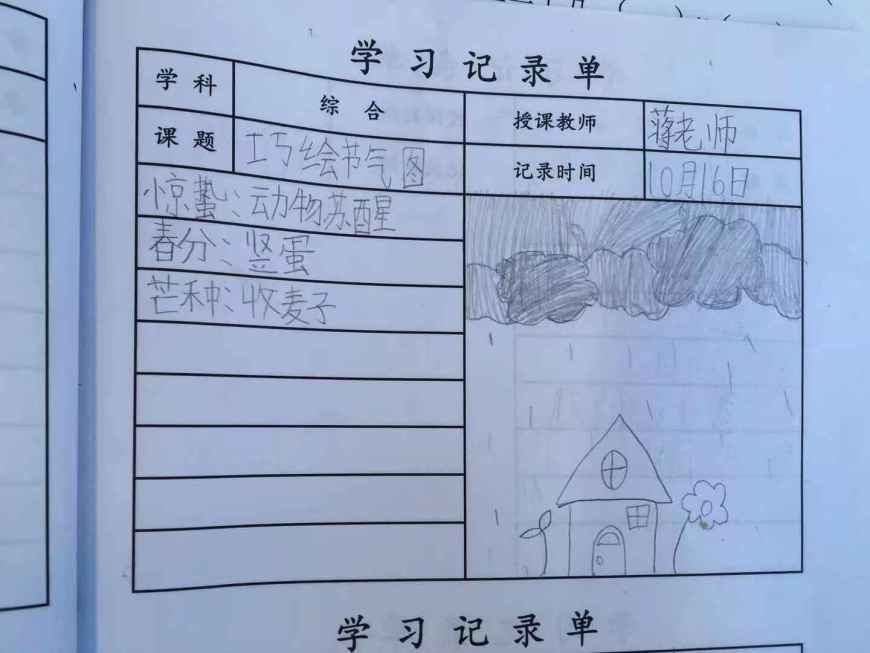 学习记录单
学科 综合 授课教师 蒋老师
课题 巧绘节气图 记录时间 10月16日
惊蛰：动物苏醒
春分：竖蛋
芒种：收麦子
学习记录单